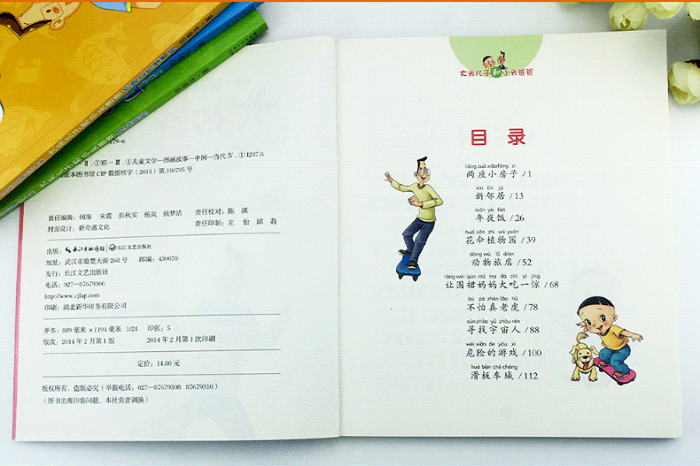 Ⅱ. ①郑… Ⅲ. ①儿童文学—图画故事—中国—当代 Ⅳ. ①I287.8
版本图书馆 CIP 数据核字（2013）第 310795 号
责任编辑：何海 朱霞 彭秋实 杨岚 钱梦洁 责任校对：陈琪
封面设计：新奇遇文化 责任印制：左怡 邱莉
出版：长江出版传媒 长江文艺出版社
地址：武汉市雄楚大街 268 号 邮编：430070
发行：长江文艺出版社
电话：027—87679360
http://www.cjlap.com
印刷：湖北新华印务有限公司
开本：889 毫米×1194 毫米 1/24 印张：5
版次：2014 年 2 月第 1 版 2014 年 2 月第 1 次印刷
定价：14.80 元
版权所有，盗版必究（举报电话：027—87679308 87679310）
（图书出现印装问题，本社负责调换）
大头儿子和小头爸爸
目录
liǎng zuò xiǎo fáng zi
两座小房子 /1
xīn lín jū
新邻居 /13
nián yè fàn
年夜饭 /26
huā sǎn zhí wù yuán
花伞植物园 /39
dòng wù lǚ diàn
动物旅店 /52
ràng wéi qún mā ma dà chī yì jīng
让围裙妈妈大吃一惊 /68
bú pà zhēn lǎo hǔ
不怕真老虎 /78
xún zhǎo yǔ zhòu rén
寻找宇宙人 /88
wēi xiǎn de yóu xì
危险的游戏 /100
huá bǎn chē chéng
滑板车城 /112